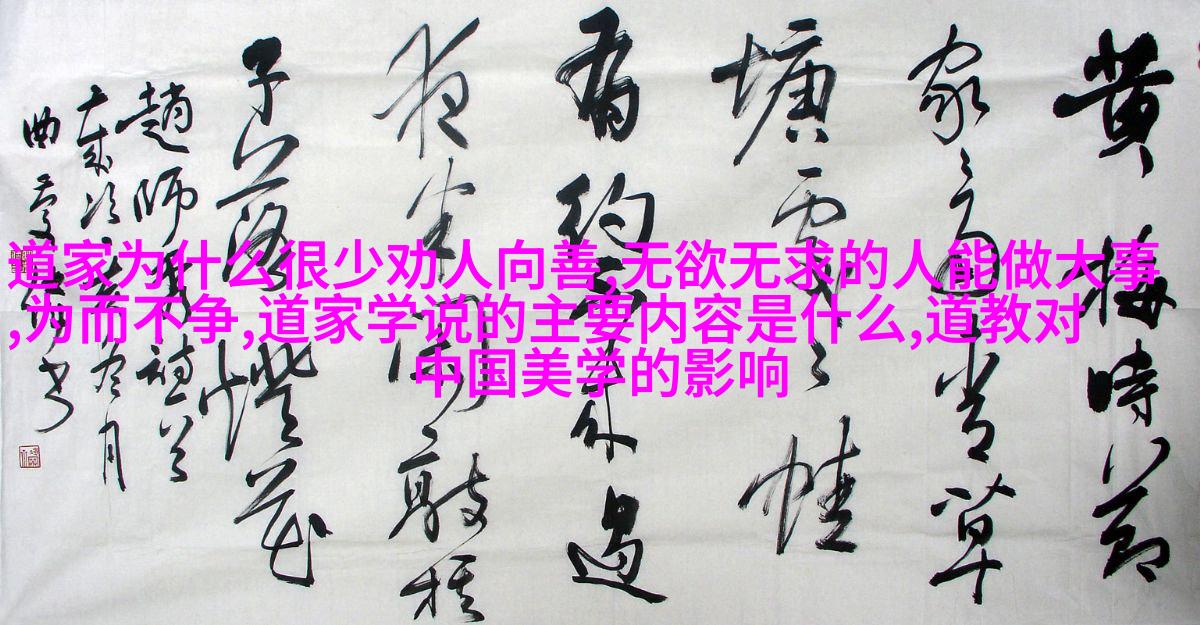 道家为什么很少劝人向善,无欲无求的人能做大事
,为而不争,道家学说的主要内容是什么,道教对
中国美学的影响
黄梅時節
家々雨青草
塘處々蛙
有約不来過
夜半閒敲棋
子落燈花
趙師秀詩
月